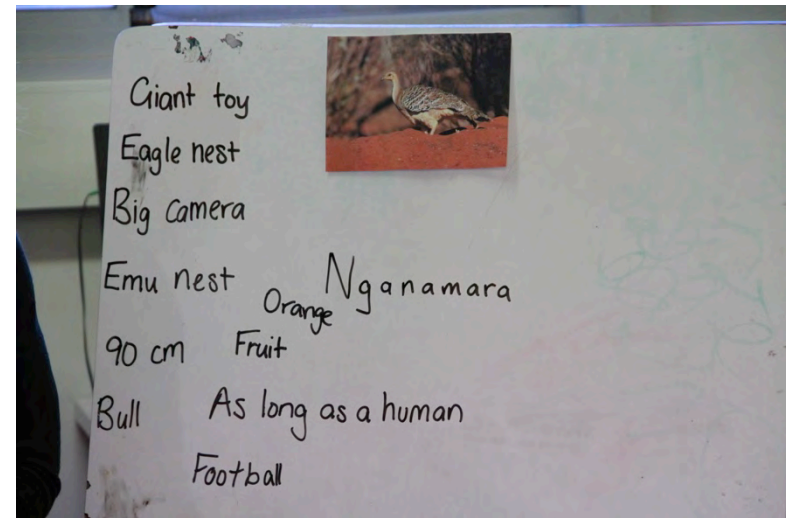 Giant toy
Eagle nest
Big camera
Emu nest
Nganamara
Orange
90 cm
Fruit
Bull
As long as a human
Football